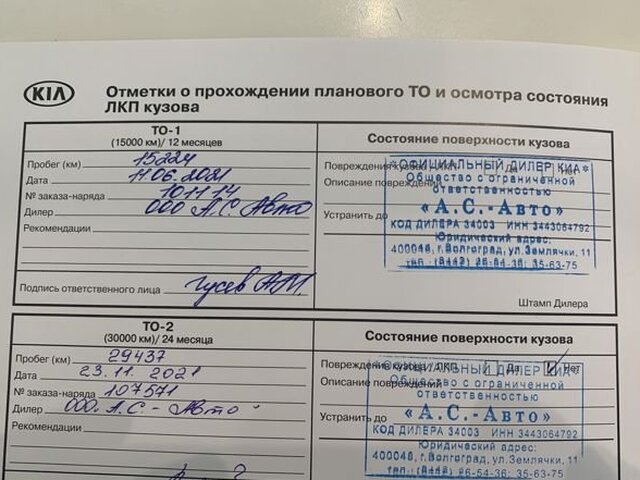 KIA
Отметки о прохождении планового ТО и осмотра состояния
ЛКП кузова
ТО-1
(15000 км)/ 12 месяцев
Состояние поверхности кузова
Пробег (км) 15224
Повреждения кузова Да Нет
Дата 11.06.2021
Описание повреждений
№ заказа-наряда 101114
Дилер ООО А.С. Авто
Устранить до
Рекомендации
*ОФИЦИАЛЬНЫЙ ДИЛЕР КИА*
Общество с ограниченной
ответственностью
«А.С.-Авто»
КОД ДИЛЕРА 34003 ИНН 3443064792
Юридический адрес:
400048, г.Волгоград, ул.Землячки, 11
тел. (8442) 26-54-36; 35-63-75
Подпись ответственного лица Гусев А.М.
Штамп Дилера
ТО-2
(30000 км)/ 24 месяца
Состояние поверхности кузова
Пробег (км) 29437
Повреждения кузова / ЛКП Да Нет
Дата 23.11.2021
Описание повреждений
№ заказа-наряда 107571
Дилер ООО. А.С - Авто
Устранить до
Рекомендации
ОФИЦИАЛЬНЫЙ ДИЛЕР КИА
Общество с ограниченной
ответственностью
«А.С.-Авто»
КОД ДИЛЕРА 34003 ИНН 3443064792
Юридический адрес:
400048, г.Волгоград, ул.Землячки, 11
тел. (8442) 26-54-36; 35-63-75